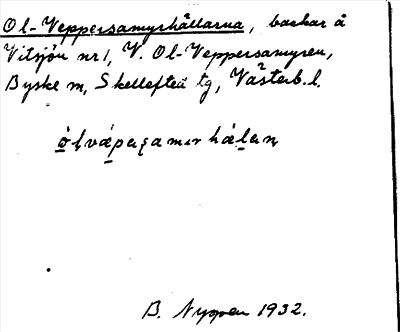 Ol-Veppersamyrhällarna, backar å
Vitsjön nr 1, V. Ol-Veppersamyren,
Byske sn, Skellefteå tg, Västerb. l.
B. Nyppen 1932.